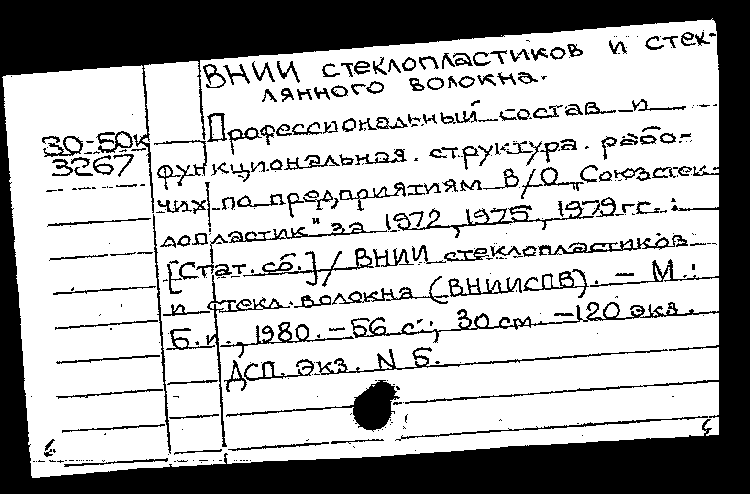 ВНИИ стеклопластиков и стек-
лянного волокна.
30-50к
3267
Профессиональный состав и
функциональная структура рабо-
чих по предприятиям В/О „Союзстек-
лопластик" за 1972, 1975, 1979 гг.:
[Стат. сб.] / ВНИИ стеклопластиков
и стекл. волокна (ВНИИСПВ). – М.:
Б.и., 1980. – 56 с.; 30 см. – 120 экз.
ДСП. Экз. N 5.